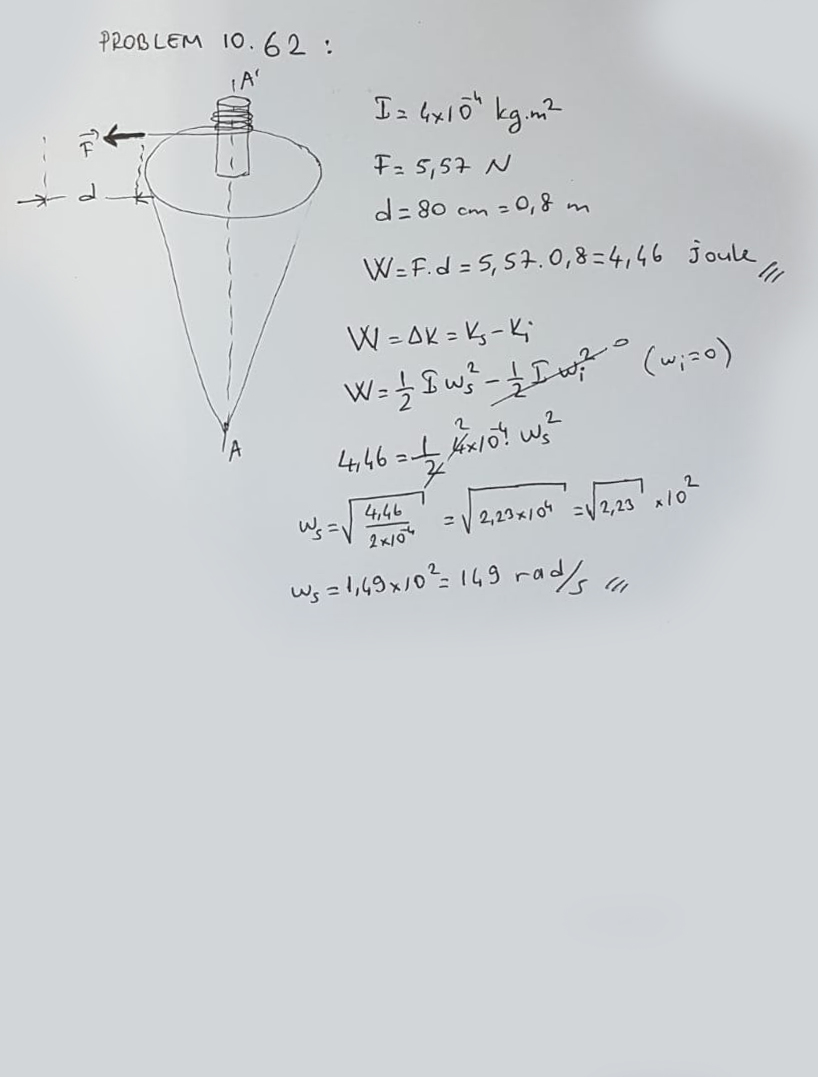 PROBLEM 10.62 :
A'
F
d
A
I = 4x10⁻⁴ kg.m²
F = 5,57 N
d = 80 cm = 0,8 m
W = F.d = 5,57.0,8 = 4,46 joule
W = ΔK = Ks - Ki
W = 1/2 I ws² - 1/2 I wi² 0 (wi = 0)
4,46 = 1/2 4x10⁻⁴. ws² 2
ws = √(4,46/2x10⁻⁴) = √(2,23x10⁴) = √2,23 x10²
ws = 1,49x10² = 149 rad/s